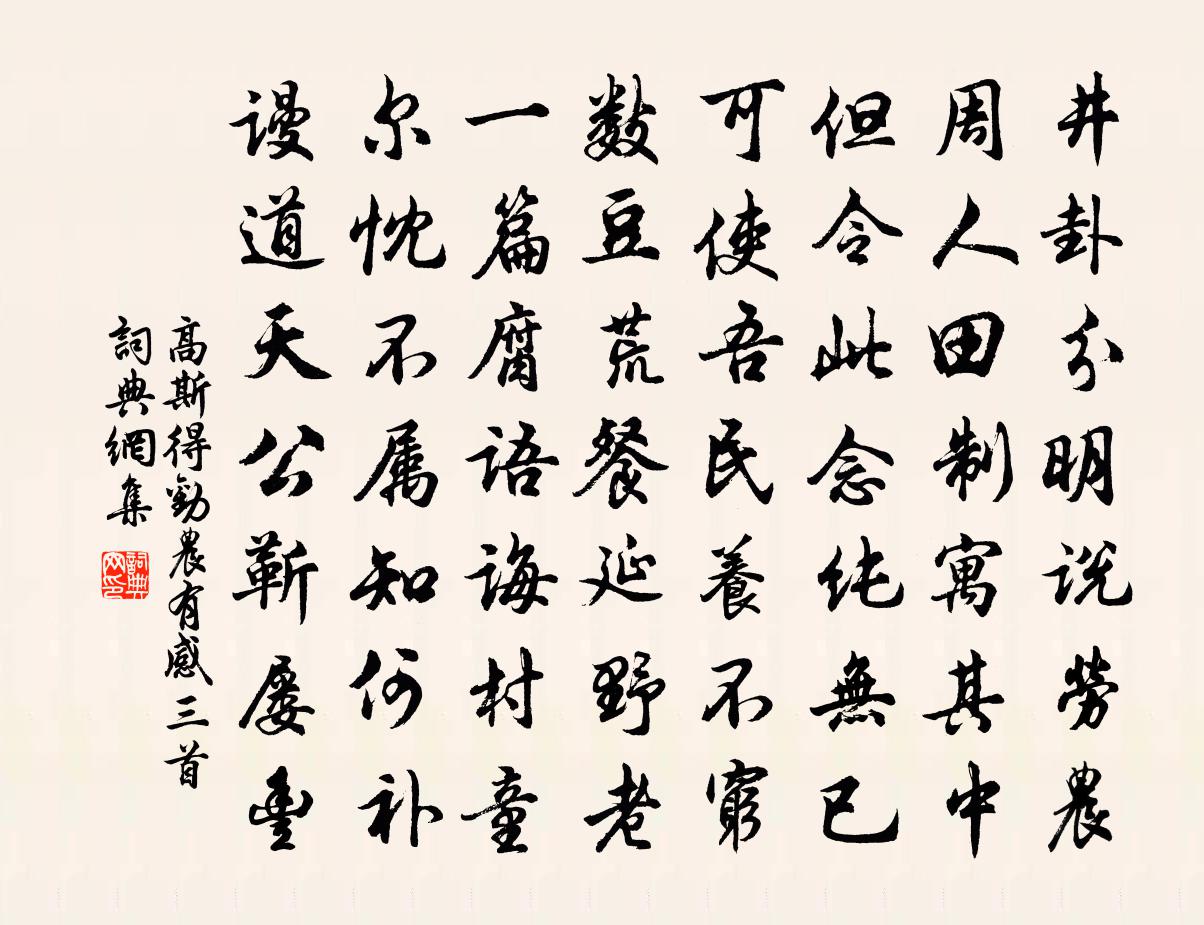 井卦分明说勞農
周人田制寓其中
但令此念纯無已
可使吾民養不窮
数豆荒餐延野老
一篇腐语诲村童
尔忱不属知何补
谩道天公靳屡豊
高斯得勸農有感三首
詞典網集
詞典
网印